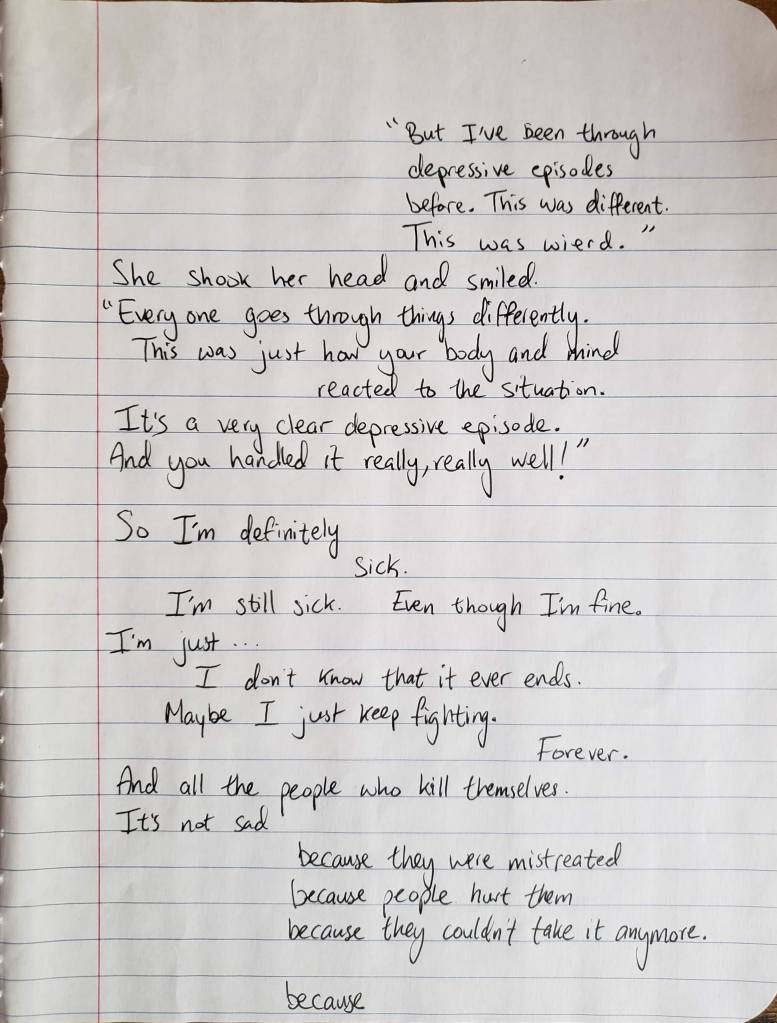 "But I've been through
depressive episodes
before. This was different.
This was wierd."
She shook her head and smiled.
"Every one goes through things differently.
This was just how your body and mind
reacted to the situation.
It's a very clear depressive episode.
And you handled it really, really well!"
So I'm definitely
Sick.
I'm still sick. Even though I'm fine.
I'm just ...
I don't know that it ever ends.
Maybe I just keep fighting.
Forever.
And all the people who kill themselves.
It's not sad
because they were mistreated
because people hurt them
because they couldn't take it anymore.
because